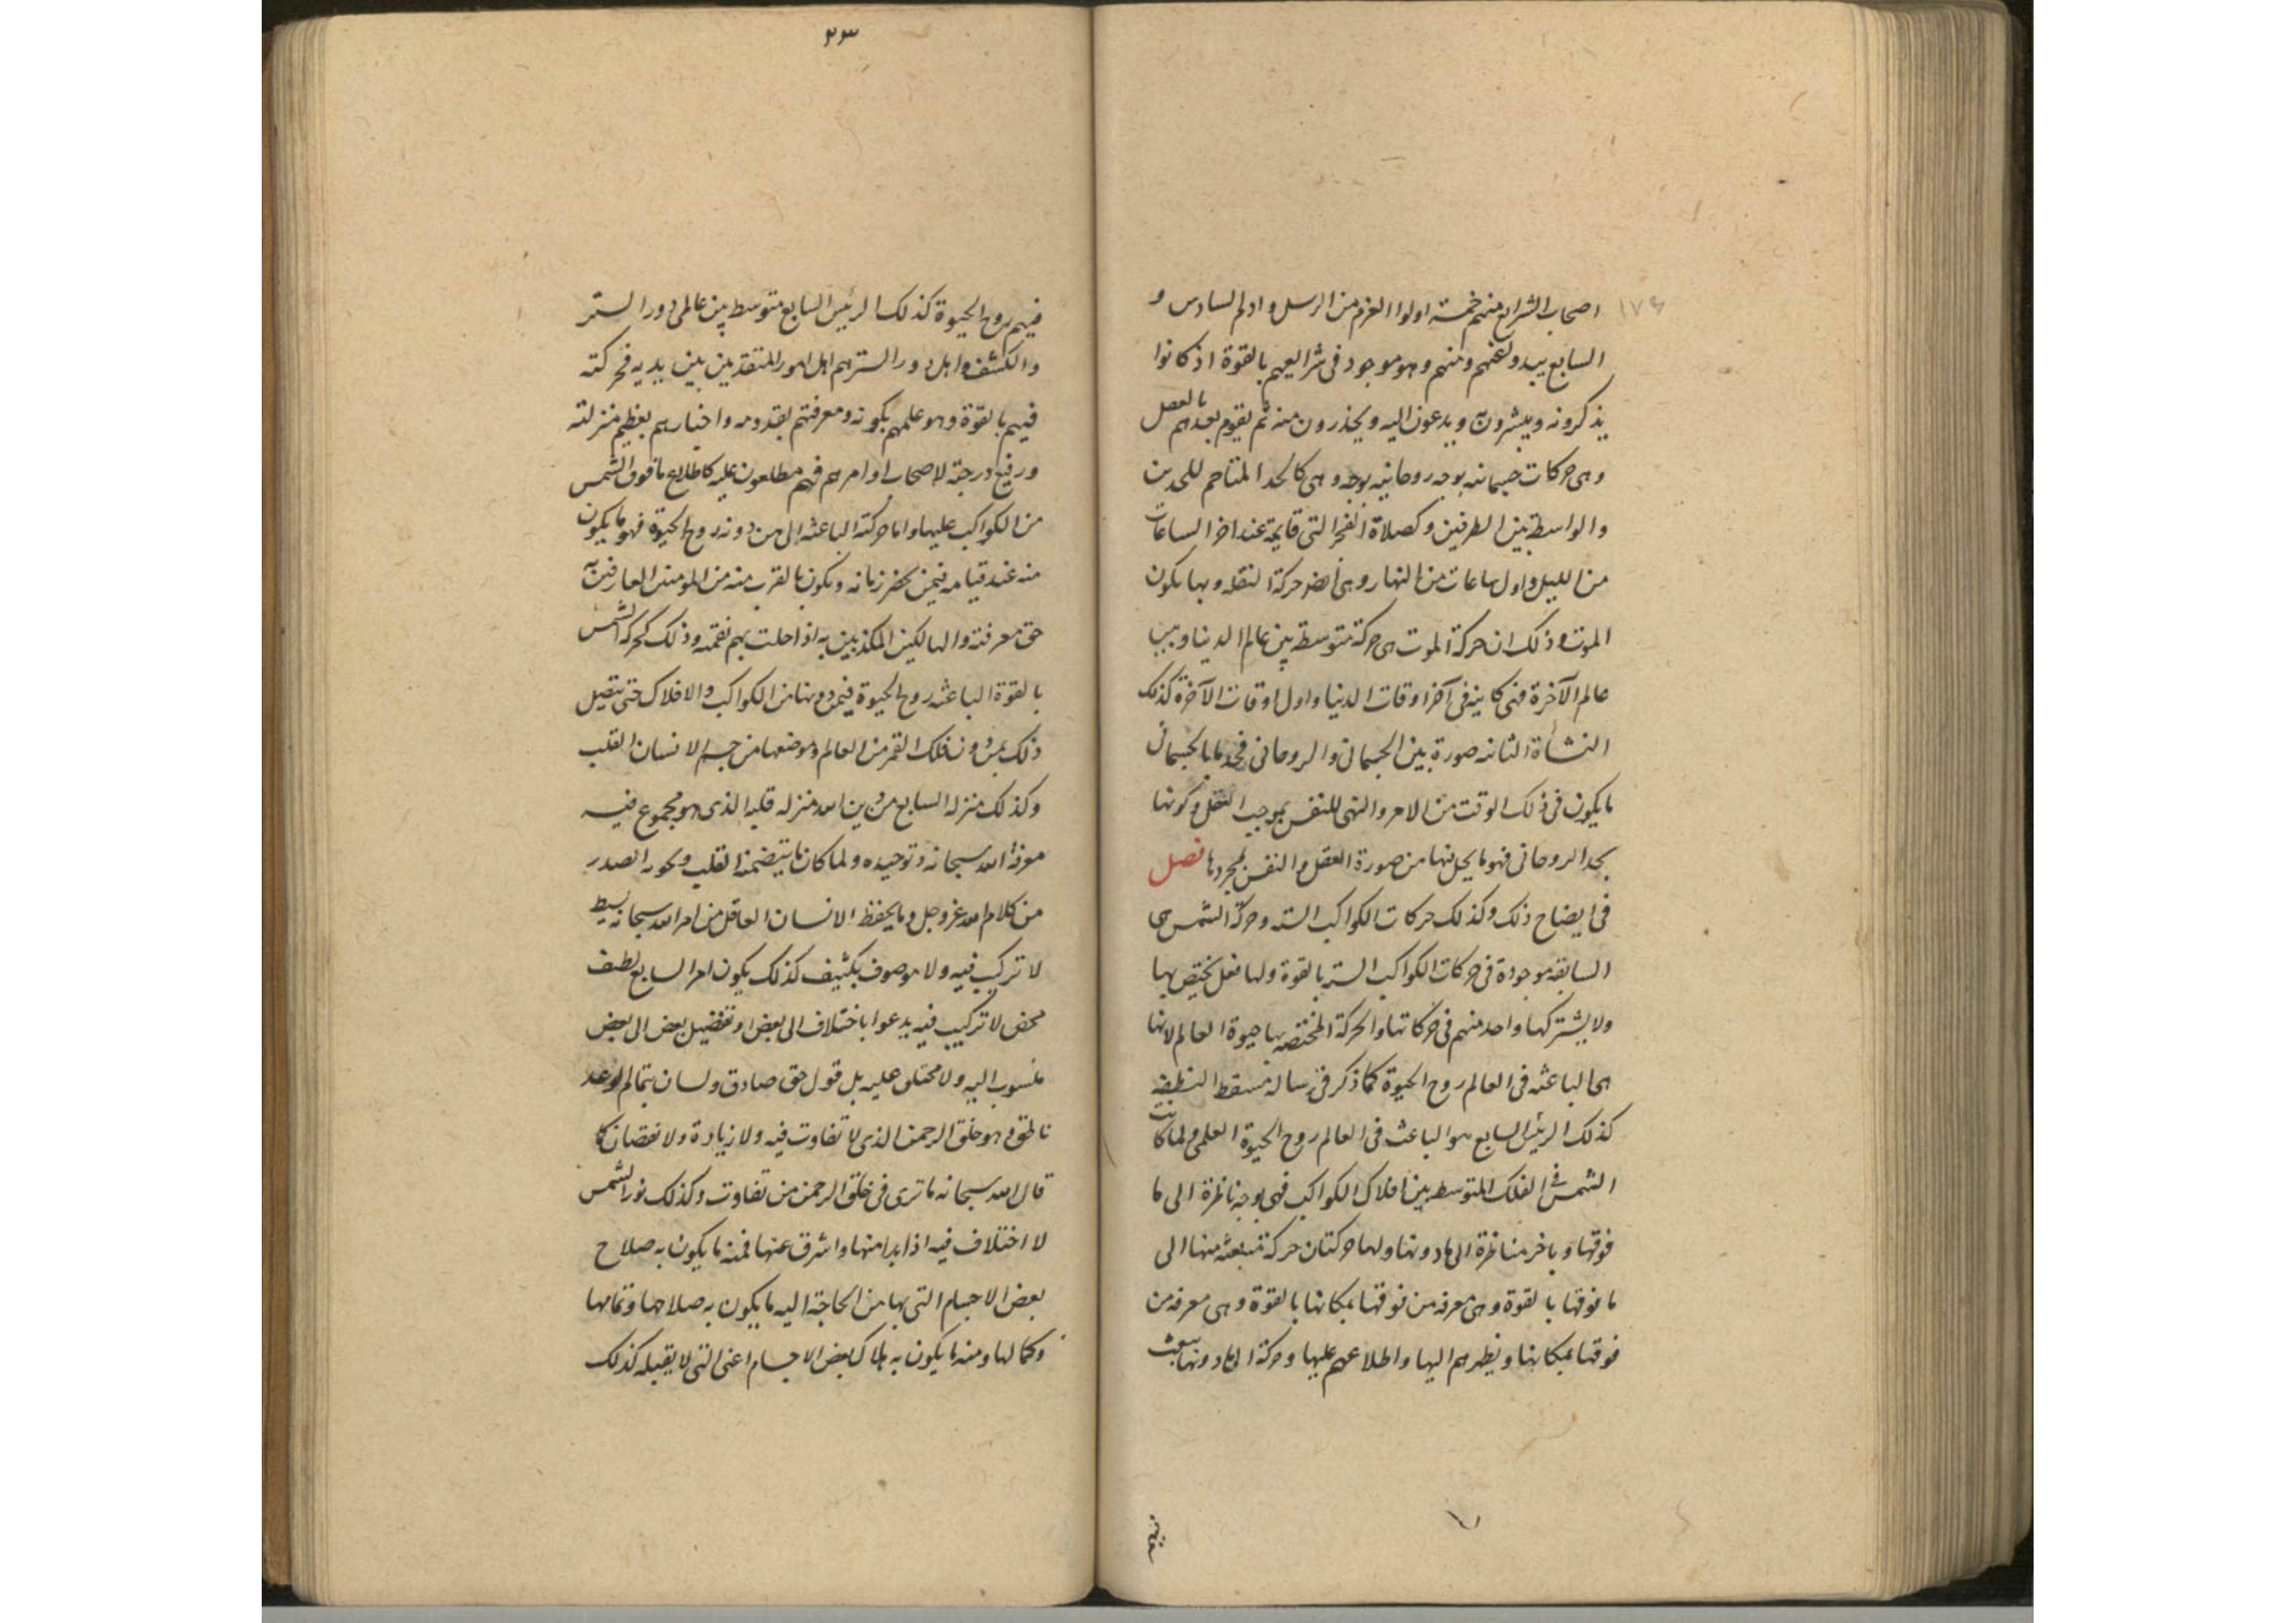 ١٧٤
اصحاب الشرايع منهم خمسة اولوا العزم من الرسل و ادلم السادس و
السابع يبدو لعنهم ومنهم وهو موجود فى شرايعهم بالقوة اذ كانوا
يذكرونه ويبشرون به ويدعون اليه ويحذرون منه ثم يقوم بعدهم بالفعل
وهى حركات جسمانيه بوجه روحانيه بوجه وهى كالحد المتاخم للحدين
والواسط بين الطرفين وكصلاة الفجر التى قايمة عند اخر الساعات
من الليل واول ساعات من النهار وهى ايضا حركة النقله وبها يكون
الموت وذلك ان حركة الموت هى حركة متوسطة بين عالم الدنيا وبين
عالم الآخرة فهى كاينه فى آخر اوقات الدنيا واول اوقات الآخرة كذلك
النشأة الثانيه صورة بين الجسمانى والروحانى فحدها بالجسمانى
ما يكون فى ذلك الوقت من الامر والنهى للنفس بموجب العقل وكونها
بحد الروحانى فهو ما يحل منها من صورة العقل والنفس لمجردها فصل
فى ايضاح ذلك وكذلك حركات الكواكب الستة وحركة الشمس هى
السابقه موجودة فى حركات الكواكب الستة بالقوة ولها فعل يختص بها
ولا يشتركها واحد منهم فى حركاتها والحركة المختصه بها حيوة العالم لانها
هى الباعثه فى العالم روح الحيوة كما ذكر فى رسالة مسقط النطفه
كذلك الرئيس السابع هو الباعث فى العالم روح الحيوة العلمى ولما كانت
الشمس فى الفلك المتوسط بين افلاك الكواكب فهى بوجه ناظرة الى ما
فوقها وباخر مناظرة الى ما دونها ولها حركتان حركة منبعثه منها الى
ما فوقها بالقوة وهى معرفه من فوقها بمكانها بالقوة وهى معرفه من
فوقها بمكانها ونظرهم اليها واطلاعهم عليها وحركة الى ما دونها تبعث
فيهم
٢٣
فيهم روح الحيوة كذلك الرئيس السابع متوسط بين عالمى دور الستر
والكشف واهل دور الستر هم اهل امور المتقدمين بين يديه فحركته
فيهم بالقوة وهو علمهم بكونه ومعرفتهم بقدومه واخبارهم بعظيم منزلته
ورفيع درجته لاصحاب اوامرهم فهم مطلعون عليه كاطلاع ما فوق الشمس
من الكواكب عليها واما حركته الباعثه الى من دونه روح الحيوة فهو ما يكون
منه عند قيامه فيمن يحضر زمانه ويكون بالقرب منه من المومنين العارفين به
حق معرفته والهالكين المكذبين به اذا حلت بهم نقمته وذلك كحركة الشمس
بالقوة الباعثه روح الحيوة فيمن دونها من الكواكب والافلاك حتى يتصل
ذلك بمن دون فلك القمر من العالم وموضعها من جسم الانسان القلب
وكذلك منزلة السابع من دين الله منزله قلبه الذى هو مجموع فيه
معرفة الله سبحانه وتوحيده ولما كان ما يتضمنه القلب ويحويه الصدر
من كلام الله عز وجل وما يحفظ الانسان العاقل من امر الله سبحانه بسيط
لا تركيب فيه ولا موصوف بكثيف كذلك يكون امر السابع لطيف
محض لا تركيب فيه يدعوا باختلاف الى بعض او تفضيل بعض الى بعض
منسوب اليه ولا مختلق عليه بل قول حق صادق ولسان بتمام الوعد
ناطق وهو خلق الرحمن الذى لا تفاوت فيه ولا زيادة ولا نقصان كما
قال الله سبحانه ما ترى فى خلق الرحمن من تفاوت وكذلك نور الشمس
لا اختلاف فيه اذا بدا منها واشرق عنها فمنه ما يكون به صلاح
بعض الاجسام التى بها من الحاجة اليه ما يكون به صلاحها وتمامها
وكمالها ومنه ما يكون به هلاك بعض الاجسام اعنى التى لا يقبله كذلك